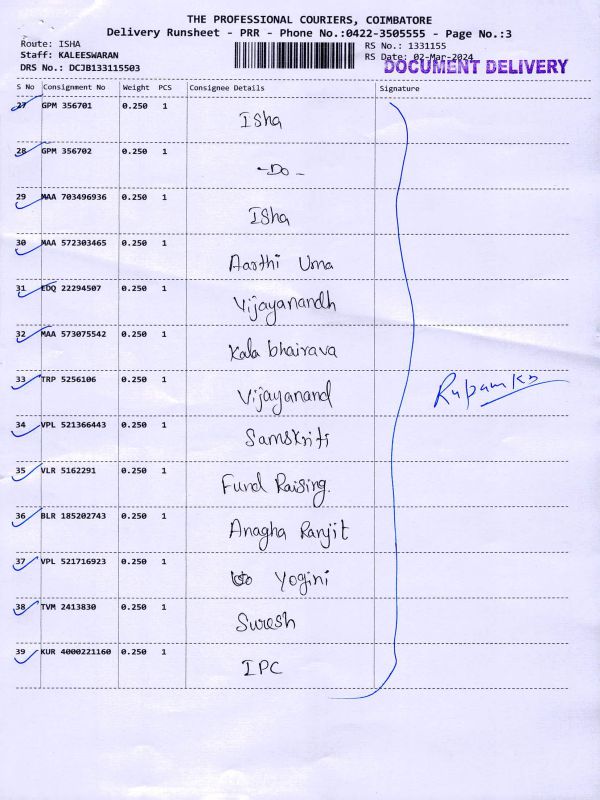 THE PROFESSIONAL COURIERS, COIMBATORE
Delivery Runsheet - PRR - Phone No.:0422-3505555 - Page No.:3
Route: ISHA
Staff: KALEESWARAN
DRS No.: DCJB133115503
RS No.: 1331155
RS Date: 02-Mar-2024
DOCUMENT DELIVERY
S No Consignment No Weight PCS Consignee Details Signature
27 GPM 356701 0.250 1 Isha
28 GPM 356702 0.250 1 -Do-
29 MAA 703496936 0.250 1 ISha
30 MAA 572303465 0.250 1 Aarthi Uma
31 EDQ 22294507 0.250 1 Vijayanandh
32 MAA 573075542 0.250 1 Kala bhairava
33 TRP 5256106 0.250 1 Vijayanand
34 VPL 521366443 0.250 1 Samskriti
35 VLR 5162291 0.250 1 Fund Raising.
36 BLR 185202743 0.250 1 Anagha Ranjit
37 VPL 521716923 0.250 1 Yogini
38 TVM 2413830 0.250 1 Suresh
39 KUR 4000221160 0.250 1 IPC